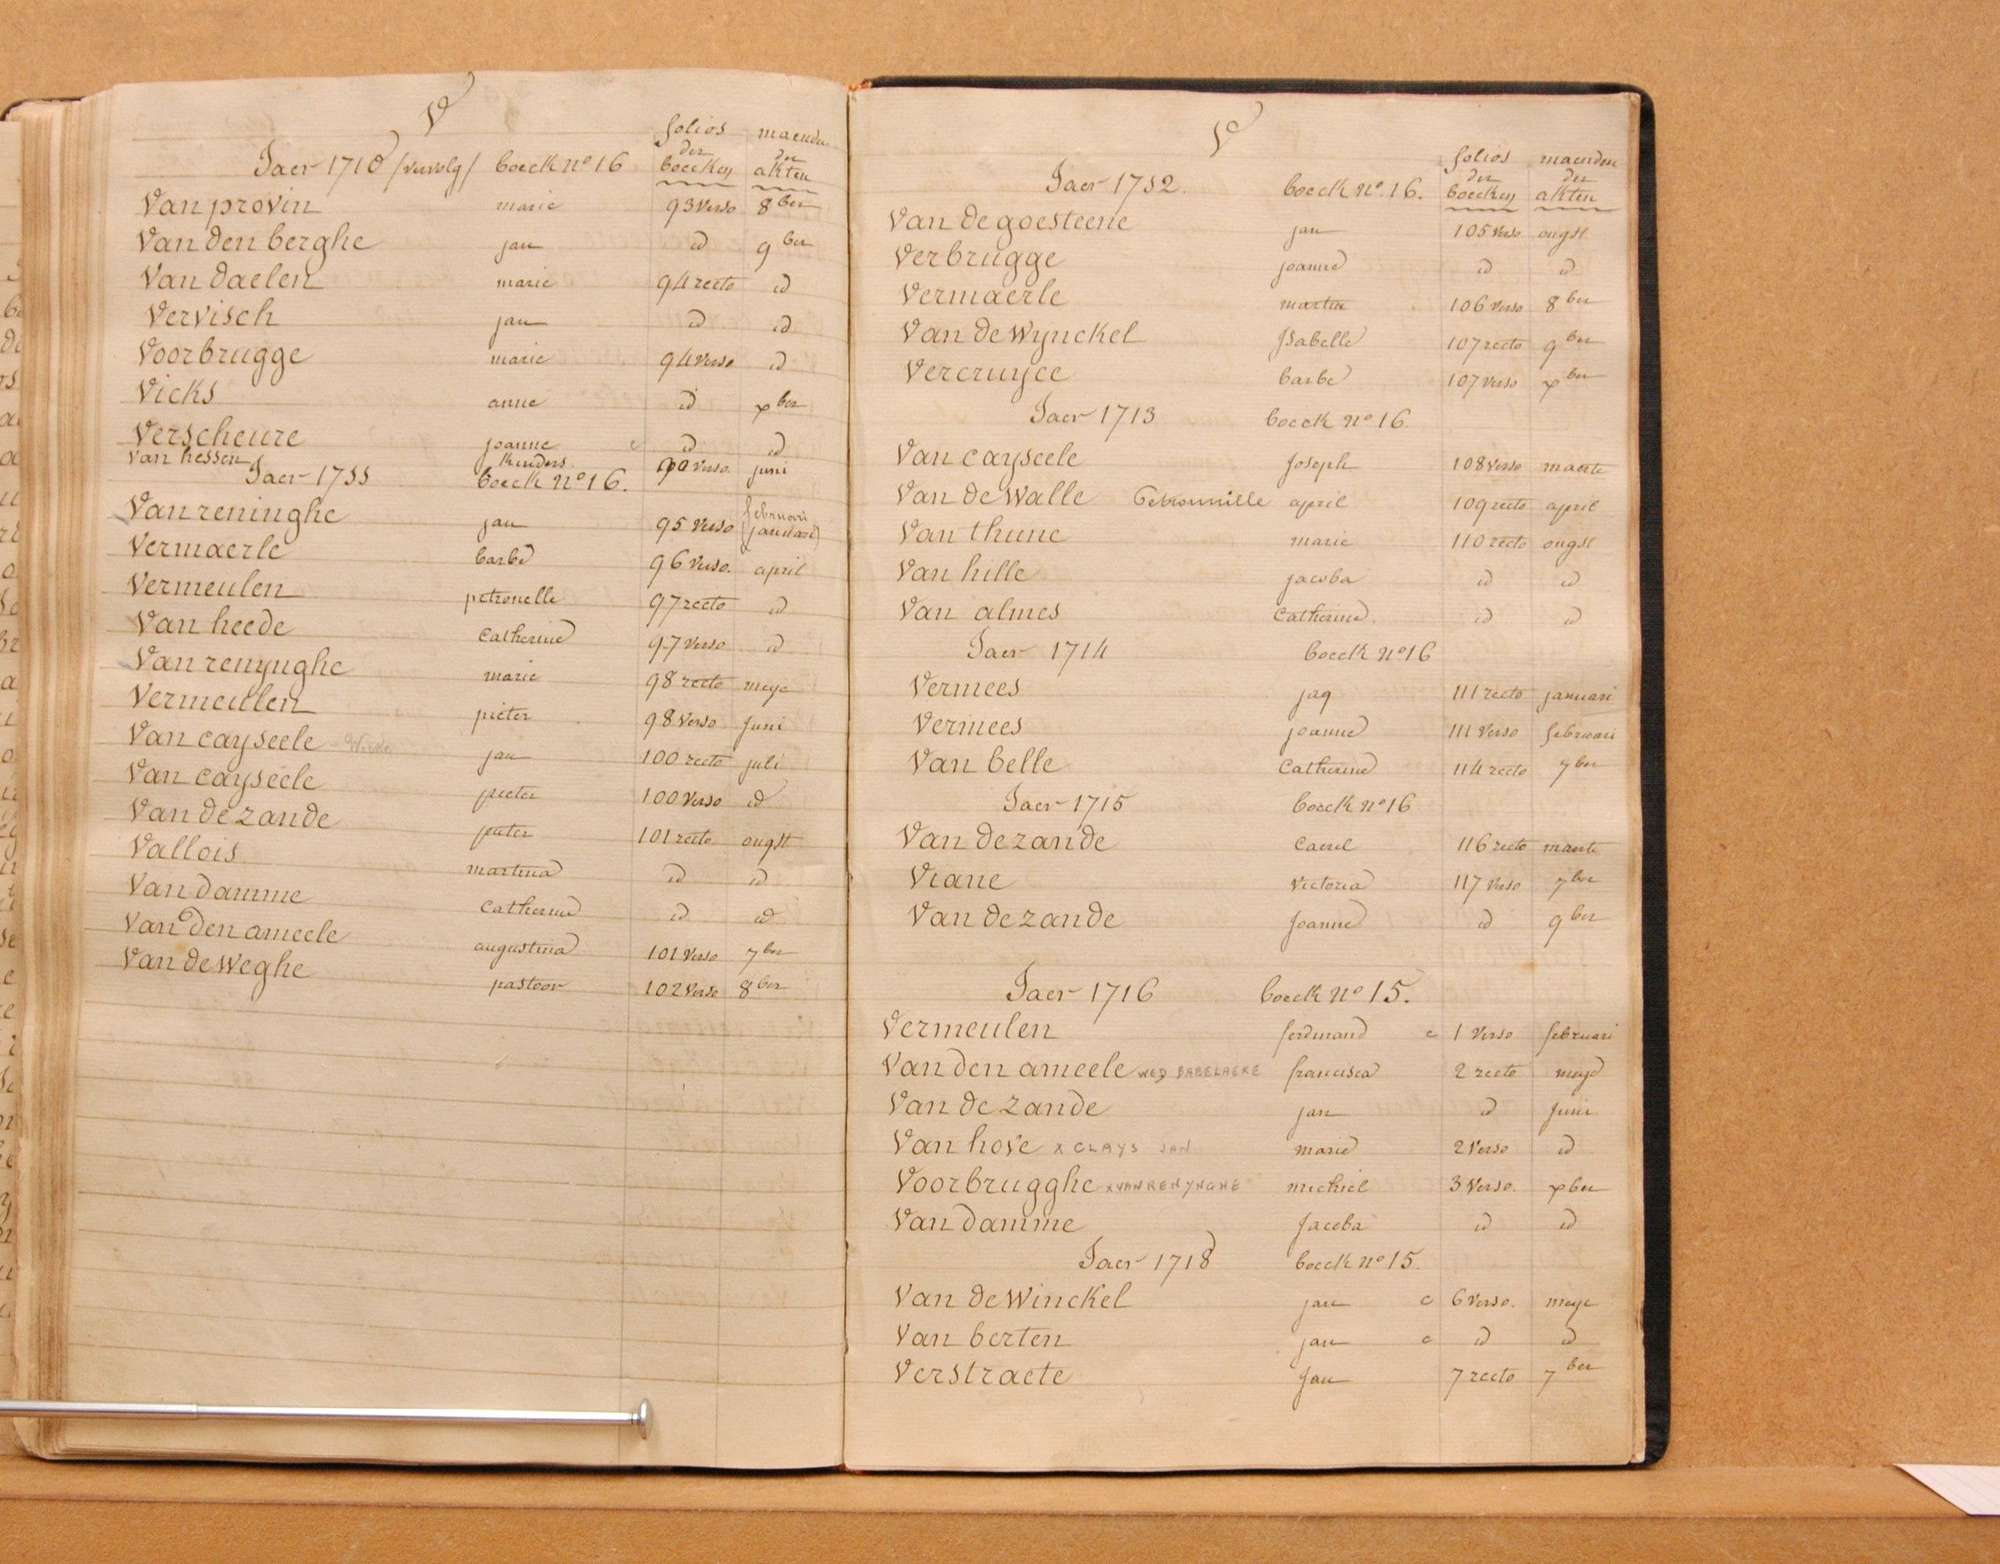 V
folios maenden
der der
Jaer 1710 /vervolg/ boeck no 16 boecken akten
Van provin marie 93 verso 8ber
Van den berghe jan id 9ber
Van daelen marie 94 recto id
Vervisch jan id id
Voorbrugge marie 94 verso id
Vicks anne id xber
Verscheure joanne c id id
Van hessen kinders 90 verso juni
Jaer 1711 boeck no 16.
februari
Van reninghe jan 95 verso (januari)
Vermaerle barbe 96 verso. april
Vermeulen petronelle 97 recto id
Van heede Catherine 97 verso id
Van renynghe marie 98 recto meye
Vermeulen pieter 98 verso Juni
Van cayseele jan 100 recto juli
Van cayseele pieter 100 verso id
Van de zande pieter 101 recto ougst
Vallois martina id id
Van damme Catherine id id
Van den ameele augustina 101 verso 7ber
Van de Weghe pastoor 102 verso 8ber
V
folios maenden
der der
Jaer 1712. boeck no. 16. boecken akten
Van de goesteene jan 105 verso ougst
Verbrugge joanne id id
Vermaerle martin 106 verso 8ber
Van de Wynckel Isabelle 107 recto 9ber
Vercruyce barbe 107 verso xber
Jaer 1713 boeck no 16
Van cayseele Joseph 108 verso maerte
Van de Walle Petronnille april 109 recto april
Van thune marie 110 recto ougst
Van hille jacoba id id
Van almes Catherine id id
Jaer 1714 boeck no 16
Vermees jaq 111 recto januari
Vermees joanne 111 verso februari
Van belle Catherine 114 recto 7ber
Jaer 1715 boeck no 16
Van de zande Carel 116 recto maerte
Viane Victoria 117 verso 7ber
Van de zande Joanne id 9ber
Jaer 1716 boeck no 15.
Vermeulen ferdinand c 1 verso februari
Van den ameele WED BABELAERE francisca 2 recto meye
Van de zande jan id Juni
Van hove x CLAYS JAN marie 2 verso id
Voorbrugghe x VAN RENYNGHE michiel 3 verso. xber
Van damme Jacoba id id
Jaer 1718 boeck no 15.
Van de Winckel jan c 6 verso. meye
Van berten jan c id id
Verstraete Jan 7 recto 7ber